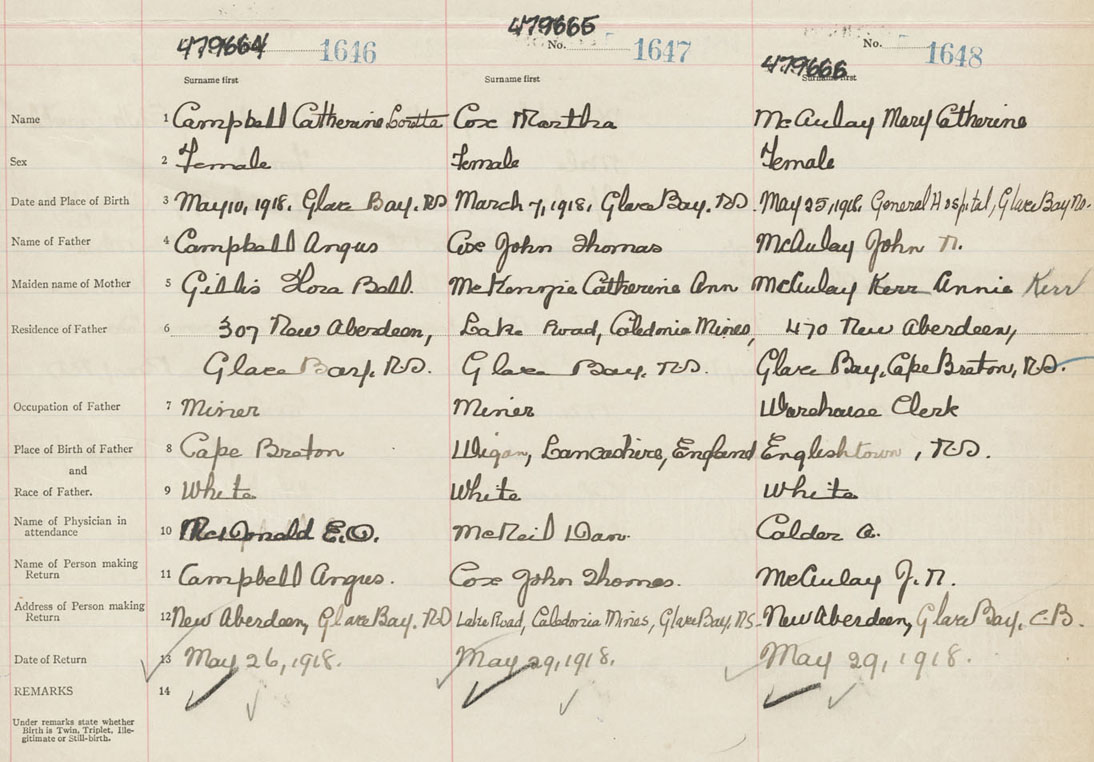 479664 1646 479665 No. 1647 No. 1648
479666
Surname first Surname first Surname first
Name 1 Campbell Catherine Loretta Cox Martha McAulay Mary Catherine
Sex 2 Female Female Female
Date and Place of Birth 3 May 10, 1918. Glace Bay. N.S March 7, 1918, Glace Bay. N.S. May 25, 1918. General Hospital, Glace Bay N.S.
Name of Father 4 Campbell Angus Cox John Thomas McAulay John N.
Maiden name of Mother 5 Gillis Flora Bell. McKenzie Catherine Ann McAulay Kerr Annie Kerr
Residence of Father 6 307 New Aberdeen, Lake Road, Caledonia Mines, 470 New Aberdeen,
Glace Bay. N.S. Glace Bay. N.S. Glace Bay, Cape Breton, N.S.
Occupation of Father 7 Miner Miner Warehouse Clerk
Place of Birth of Father 8 Cape Breton Wigan, Lancashire, England Englishtown, N.S.
and
Race of Father. 9 White White White
Name of Physician in
attendance 10 McDonald E.O. McNeil Dan. Calder A.
Name of Person making
Return 11 Campbell Angus. Cox John Thomas. McAulay J. N.
Address of Person making
Return 12 New Aberdeen, Glace Bay. N.S Lake Road, Caledonia Mines, Glace Bay, N.S. New Aberdeen, Glace Bay. C.B.
Date of Return 13 May 26, 1918. May 29, 1918. May 29, 1918.
REMARKS 14
Under remarks state whether
Birth is Twin, Triplet, Ille-
gitimate or Still-birth.